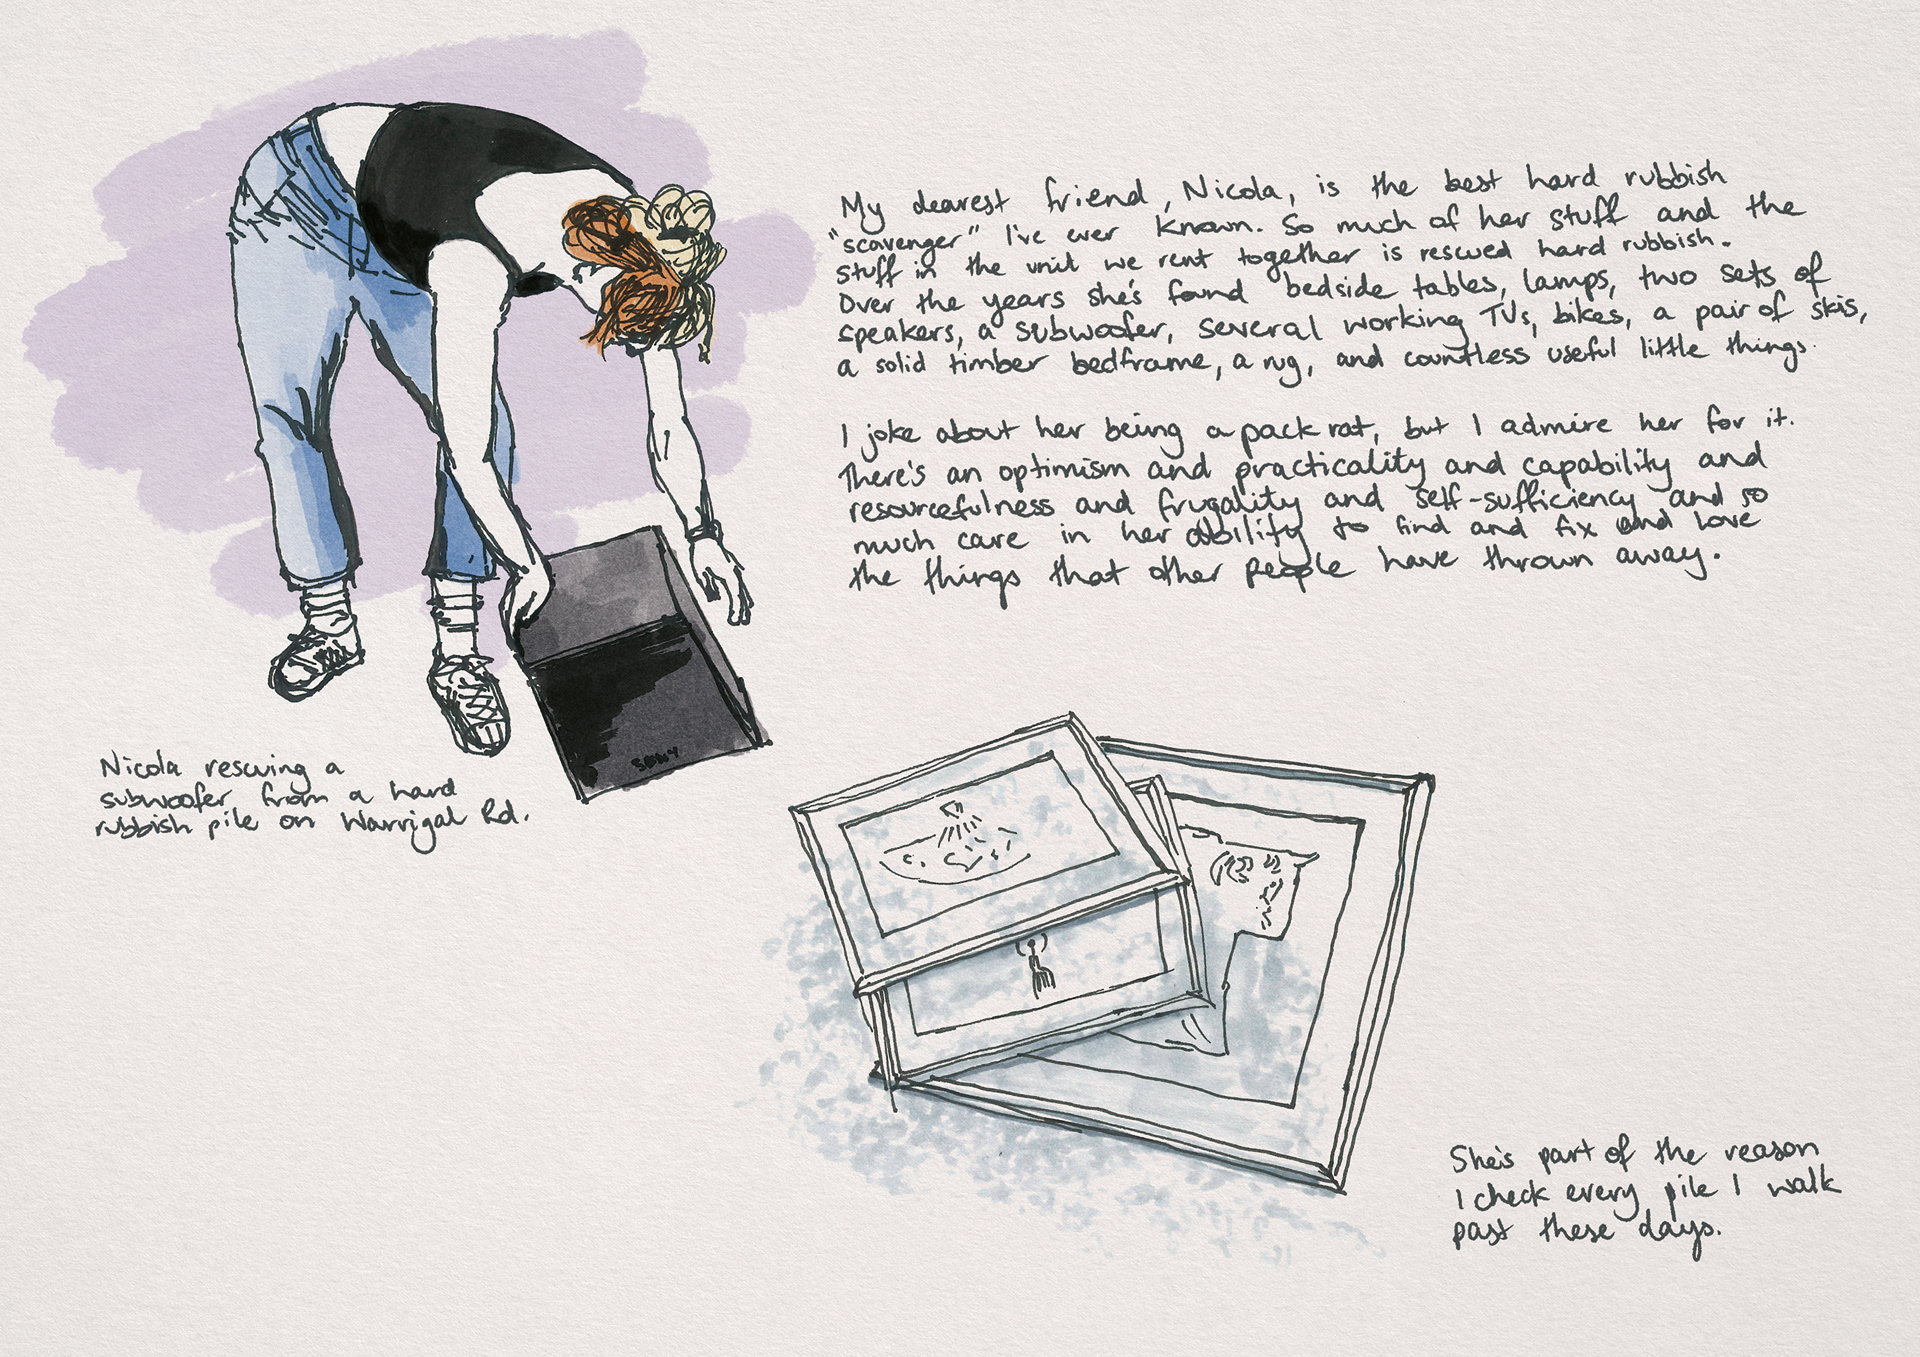 My dearest friend, Nicola, is the best hard rubbish
"scavenger" I've ever known. So much of her stuff and the
stuff in the unit we rent together is rescued hard rubbish.
Over the years she's found bedside tables, lamps, two sets of
speakers, a subwoofer, several working TVs, bikes, a pair of skis,
a solid timber bedframe, a rug, and countless useful little things.
I joke about her being a pack rat, but I admire her for it.
There's an optimism and practicality and capability and
resourcefulness and frugality and self-sufficiency and so
much care in her ability to find and fix and love
the things that other people have thrown away.
SONY
Nicola rescuing a
subwoofer from a hard
rubbish pile on Warrigal Rd.
She's part of the reason
I check every pile I walk
past these days.